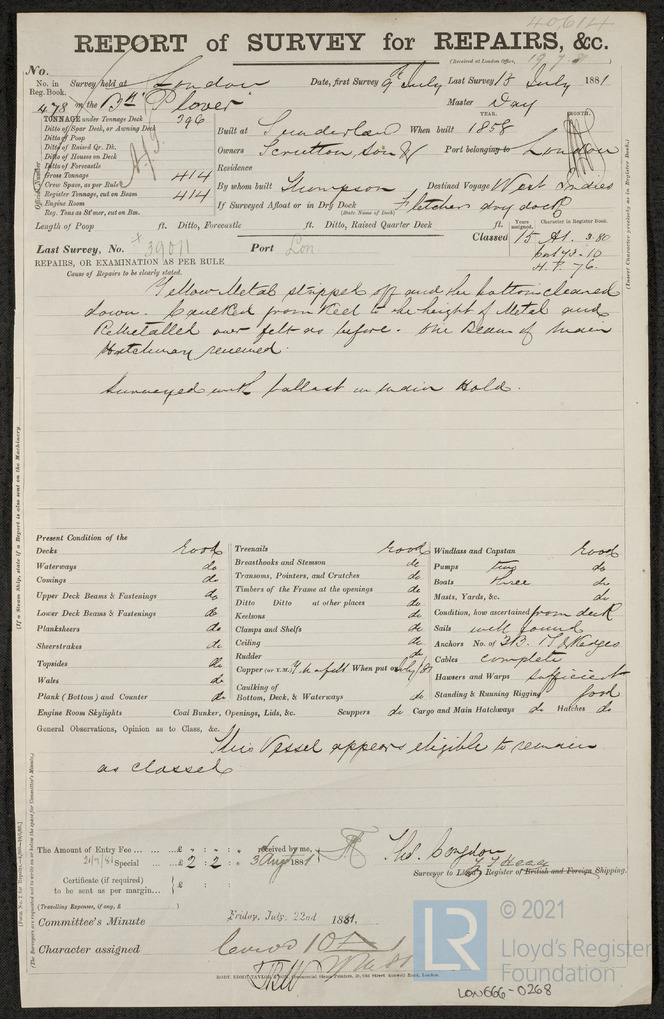 40614
REPORT of SURVEY for REPAIRS, &c.
(Received at London Office,
No.
No. in Reg. Book. Survey held at London Date, first Survey 9th July Last Survey 18 July 1881
478 on the Bk "Plover" Master Day
TONNAGE under Tonnage Deck 296
Ditto of Spar Deck, or Awning Deck
Ditto of Poop
Ditto of Raised Qr. Dk.
Ditto of Houses on Deck
Ditto of Forecastle
Gross Tonnage 414
Crew Space, as per Rule
Register Tonnage, cut on Beam 414
Engine Room
Reg. Tons as St'mer, cut on Bm.
Official Number
YEAR. MONTH.
Built at Sunderland When built 1858
Owners Scrutton, Son & Port belonging to London
Residence
By whom built Thompson Destined Voyage West Indies
If Surveyed Afloat or in Dry Dock Fletchers dry dock
(State Name of Dock)
(Insert Character precisely as in Register Book.)
Length of Poop ft. Ditto, Forecastle ft. Ditto, Raised Quarter Deck ft.
Years assigned. Character in Register Book.
Last Survey, No. 39011 Port Lon Classed 15 A1. 3.80
Cont 73-10
H.T. 76.
REPAIRS, OR EXAMINATION AS PER RULE
Cause of Repairs to be clearly stated.
Yellow Metal stripped off and the bottom cleaned
down. Caulked from Keel to the height of Metal and
Remetalled over felt as before. One Beam of Main
Hatchway renewed.
Surveyed with ballast in main Hold.
(If a Steam Ship, state if a Report is also sent on the Machinery.
Present Condition of the
Decks Good
Waterways do
Comings do
Upper Deck Beams & Fastenings do
Lower Deck Beams & Fastenings do
Planksheers do
Sheerstrakes do
Topsides do
Wales do
Plank (Bottom) and Counter do
Treenails Good
Breasthooks and Stemson do
Transoms, Pointers, and Crutches do
Timbers of the Frame at the openings do
Ditto Ditto at other places do
Keelsons do
Clamps and Shelfs do
Ceiling do
Rudder do
Copper (or Y.M.) Y.M on felt When put on July/81
Caulking of
Bottom, Deck, & Waterways do
Windlass and Capstan Good
Pumps two do
Boats three do
Masts, Yards, &c. do
Condition, how ascertained from deck
Sails well found
Anchors No. of 3B. 1S & Kedges
Cables complete
Hawsers and Warps sufficient
Standing & Running Rigging good
Engine Room Skylights Coal Bunker, Openings, Lids, &c. Scuppers do Cargo and Main Hatchways do Hatches do
General Observations, Opinion as to Class, &c.
This Vessel appears eligible to remain
as classed
The Amount of Entry Fee ... ... £ : : received by me,
Special ... £ 2 : 2 : 3 Augt 1881
Certificate (if required) to be sent as per margin... £ :
(Travelling Expenses, if any, £
Thos. Congdon
Surveyor to Lloyd's Register of British and Foreign Shipping.
Committee's Minute Friday, July. 22nd 1881.
Character assigned
(The Surveyors are requested not to write on or below the space for Committee's Minute.)
LR
© 2021
Lloyd's Register
Foundation
LON666-0268